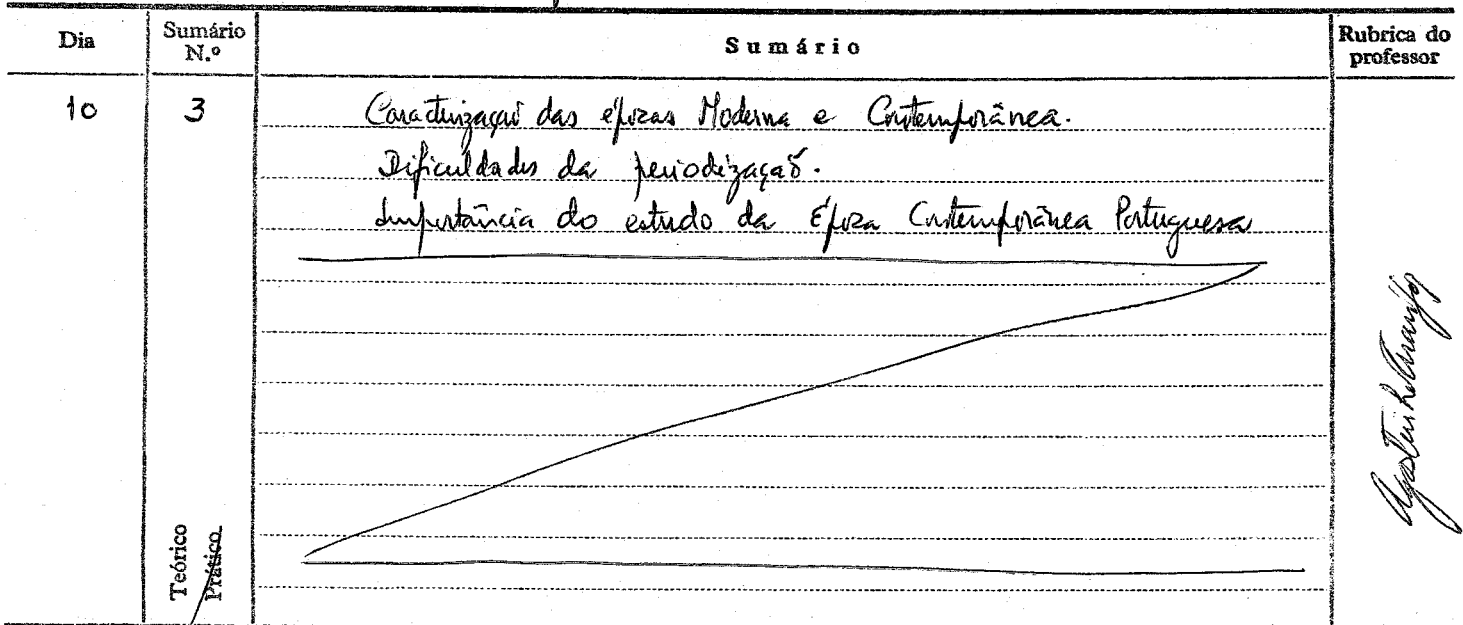 Dia
Sumário N.º
Sumário
Rubrica do professor
10
3
Caracterização das épocas Moderna e Contemporânea.
Dificuldades da periodização.
Importância do estudo da Época Contemporânea Portuguesa
Teórico
Prático